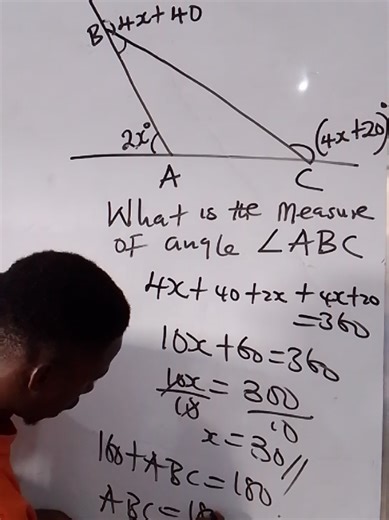 B 4x+40
2x° (4x+20)°
A C
What is the measure
of angle ∠ABC
4x+40+2x+4x+20
=360
10x+60=360
10x/10 = 300/10
x=30//
160+ABC=180
ABC=180